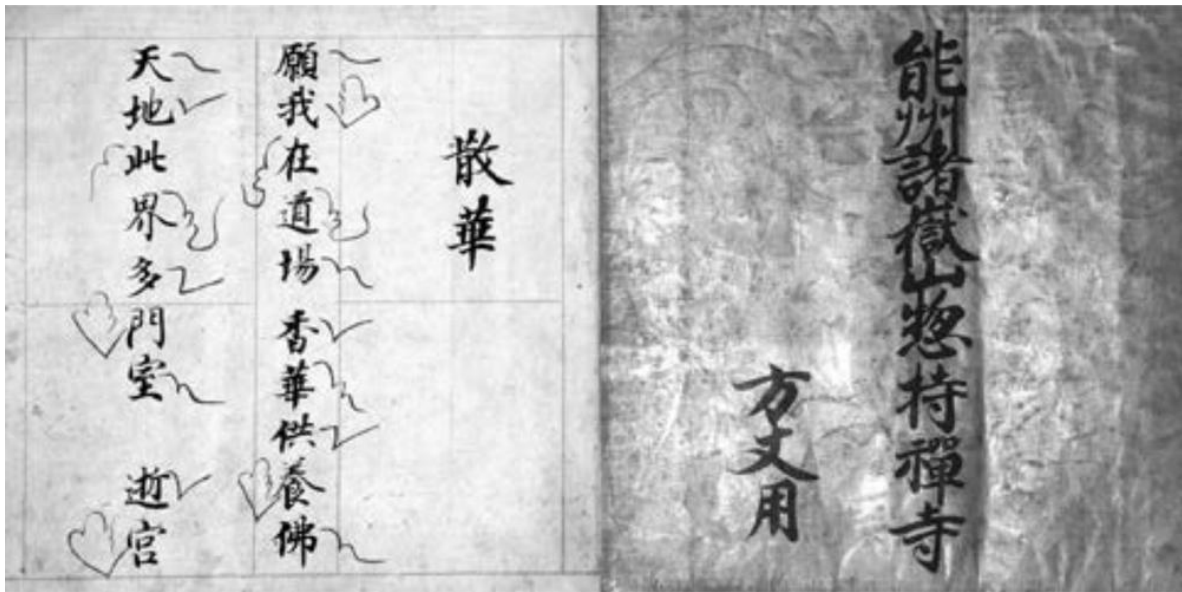 能州諸嶽山惣持禪寺
方丈用
散華
願我在道場 香華供養佛
天地此界多門室 逝宮